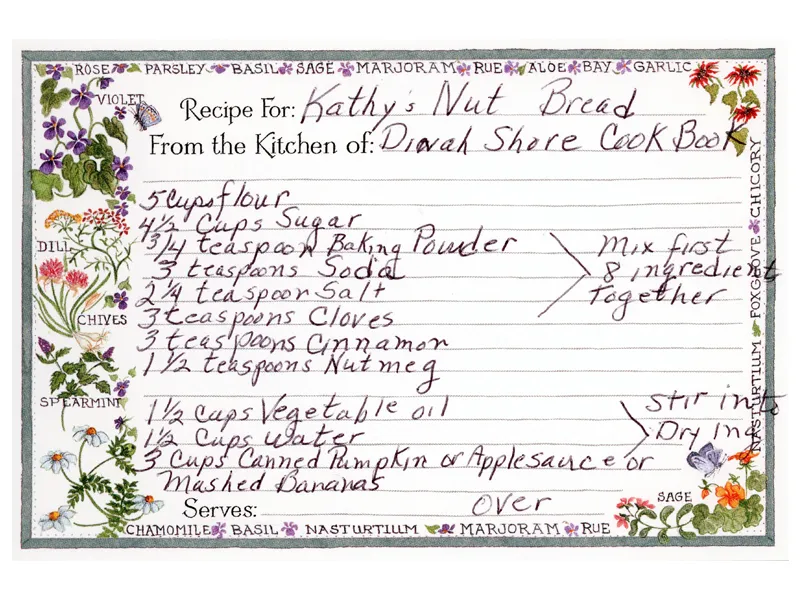 ROSE PARSLEY BASIL SAGE MARJORAM RUE ALOE BAY GARLIC
VIOLET
Recipe For: Kathy's Nut Bread
From the Kitchen of: Dinah Shore Cook Book
CHICORY
FOXGLOVE
NASTURTIUM
5 cups flour
4 1/2 Cups Sugar
3/4 teaspoon Baking Powder
3 teaspoons Soda
2 1/4 teaspoon Salt
3 teaspoons Cloves
3 teaspoons Cinnamon
1 1/2 teaspoons Nutmeg
Mix first
8 ingredient
Together
DILL
CHIVES
SPEARMINT
1 1/2 cups Vegetable oil
1 1/2 cups water
3 Cups Canned Pumpkin or Applesauce or
Mashed Bananas
Stir into
Dry In
Serves: Over
SAGE
CHAMOMILE BASIL NASTURTIUM MARJORAM RUE